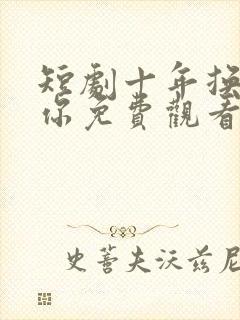 短劇十年撞
你免費觀看
史蒂夫沃兹尼